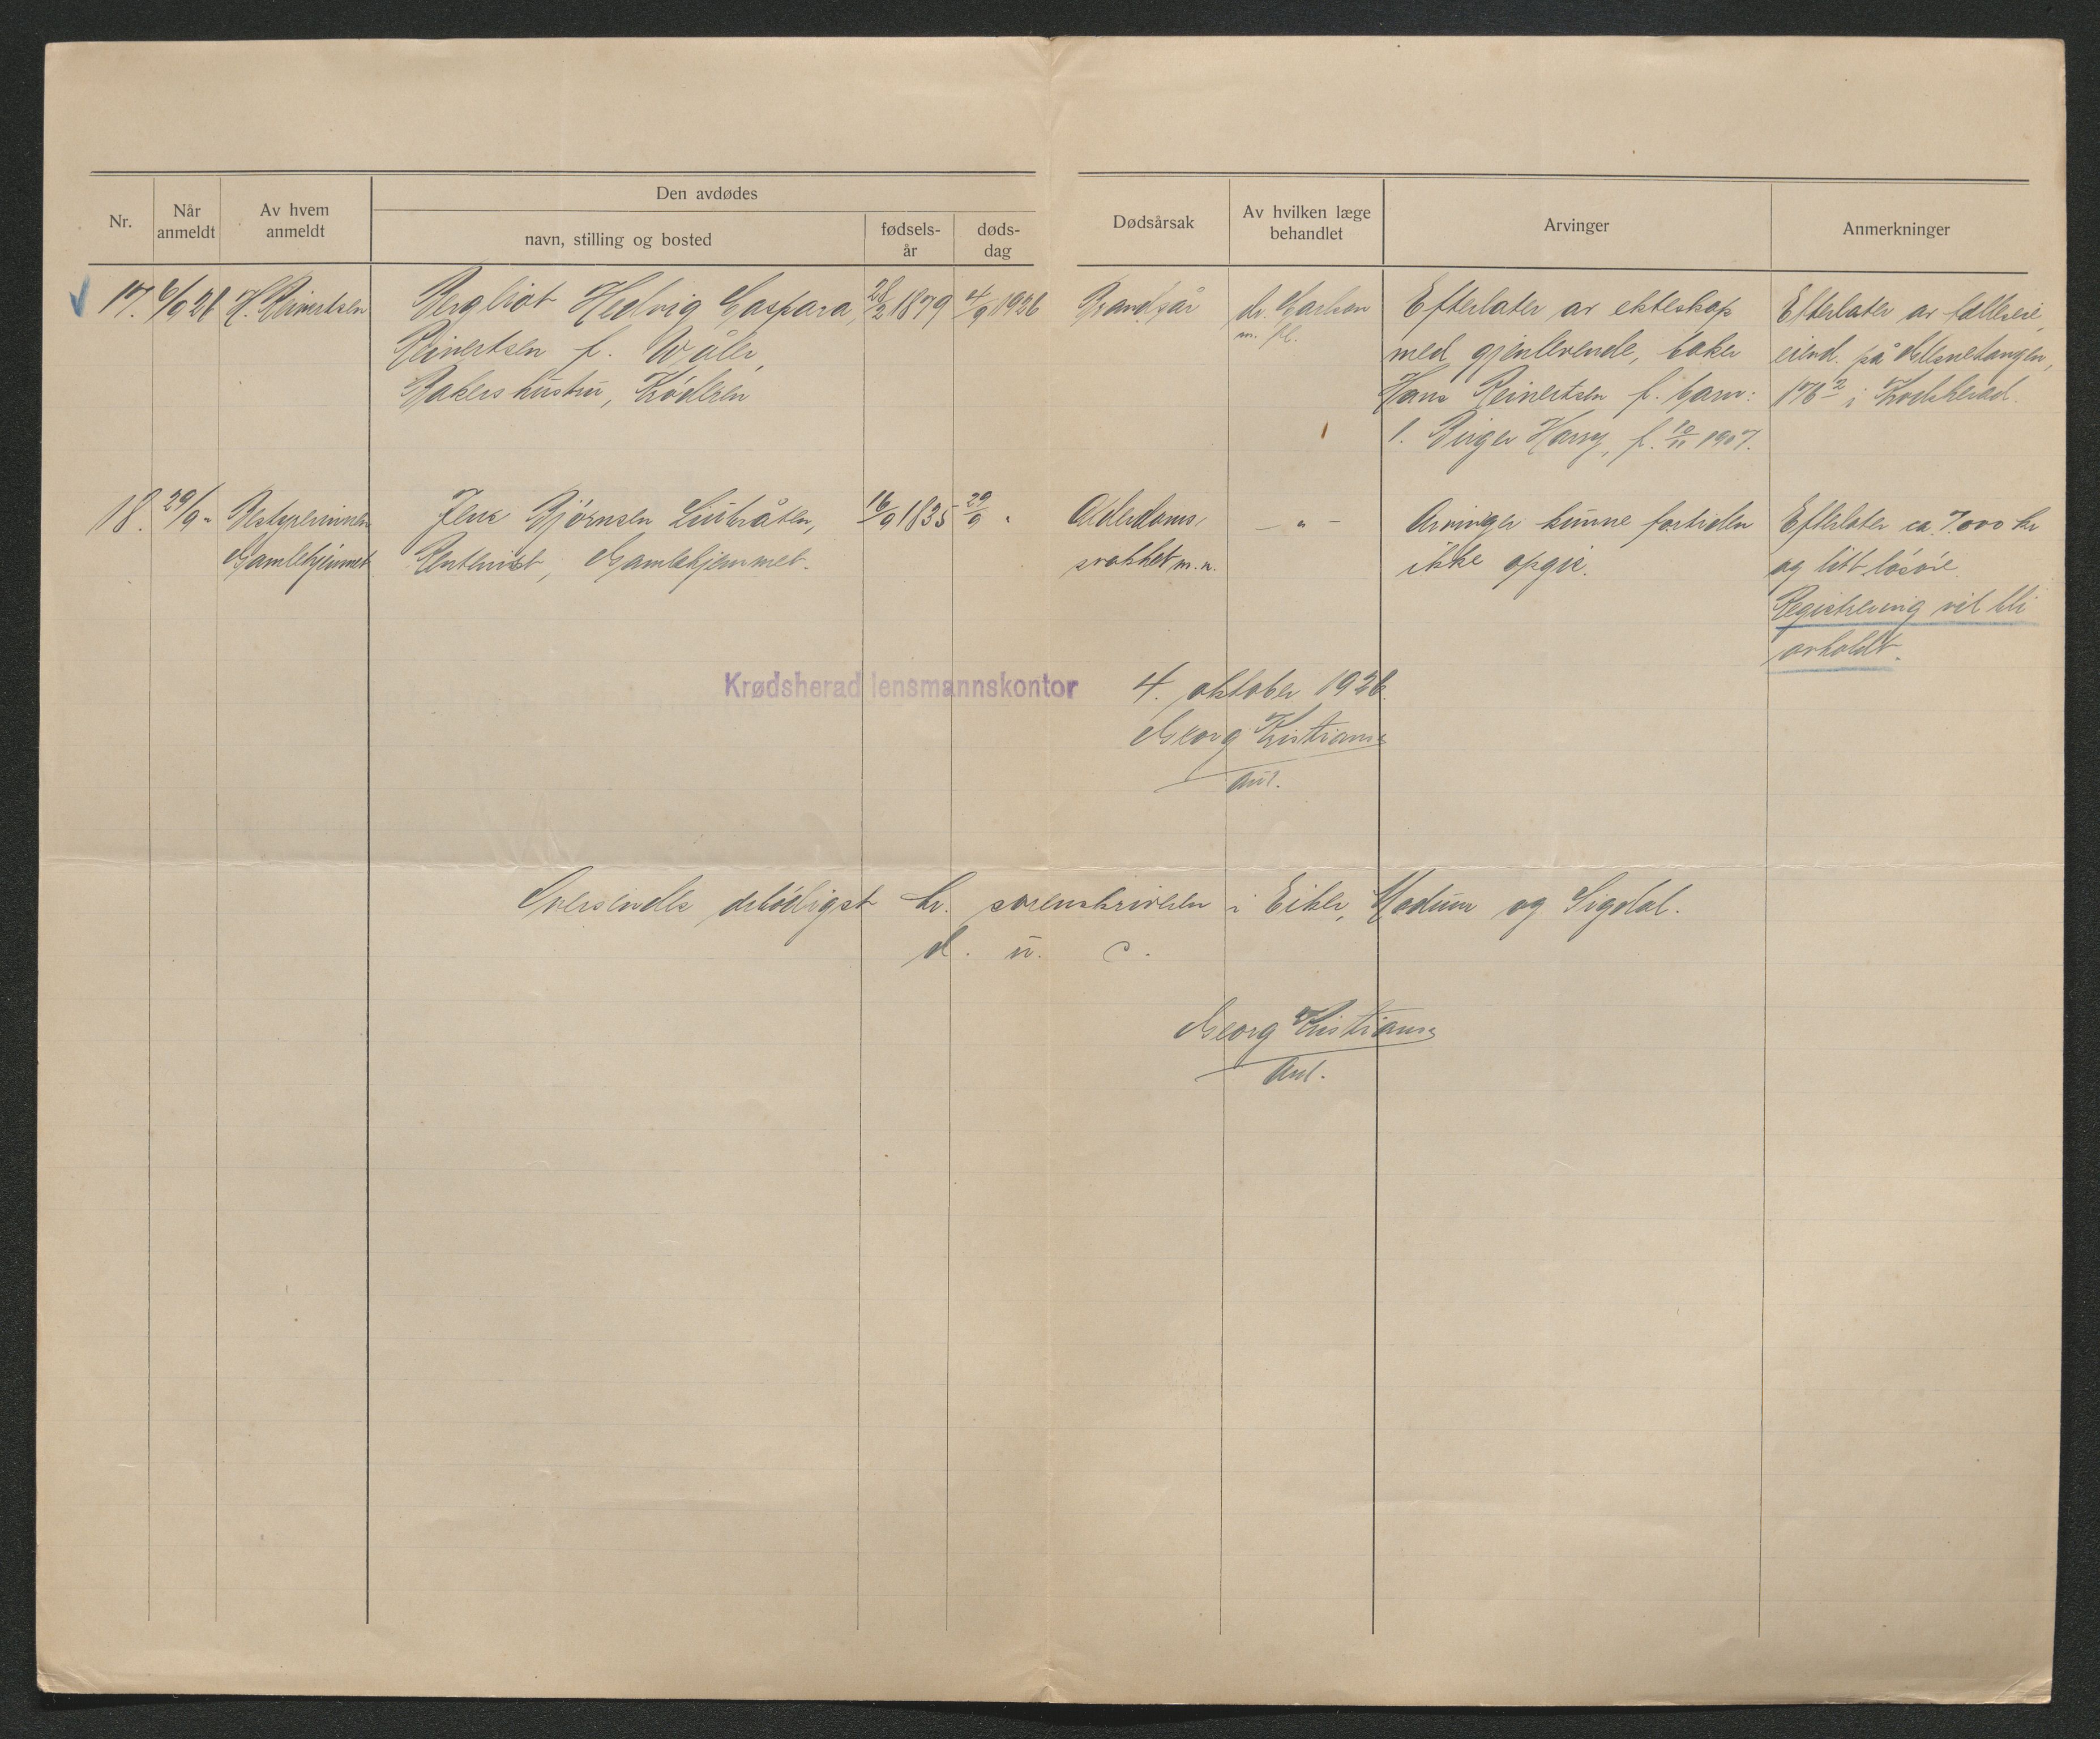 Den avdødes
Nr.
Når anmeldt
Av hvem anmeldt
navn, stilling og bosted
fødsels-år
døds-dag
Dødsårsak
Av hvilken læge behandlet
Arvinger
Anmerkninger
17. 6/9 26 H. Reinertsen
Bergliot Hedvig Caspara
Reinertsen f. Wåler,
Bakers hustru, Krøderen
28/2 1879
4/9 1926
Brandsår
dr. Carlson
m. fl.
Efterlater av ekteskap
med gjenlevende, baker
Hans Reinertsen f. barn:
1. Birger Harry, f. 10/11 1907.
Efterlater av fælleseie,
eiend. på
176² i Krødsherad.
18. 29/9 "
Bestyrerinnen
Gamlehjemmet
Jens Bjørnsen Liubråten,
Rentenist, Gamlehjemmet.
16/9 1835
29/9 "
Alderdoms-
svakhet m. m.
— " —
Arvinger kunne fortiden
ikke opgis.
Efterlater ca. 7.000 kr
og litt løsøre.
Registrering vil bli
avholdt.
Krødsherad lensmannskontor
4. oktober 1926.
Georg Kristians
aut.
Oversendes ærbødigst hr. sorenskriveren i Eiker, Modum og Sigdal.
d. u. s.
Georg Kristians
aut.